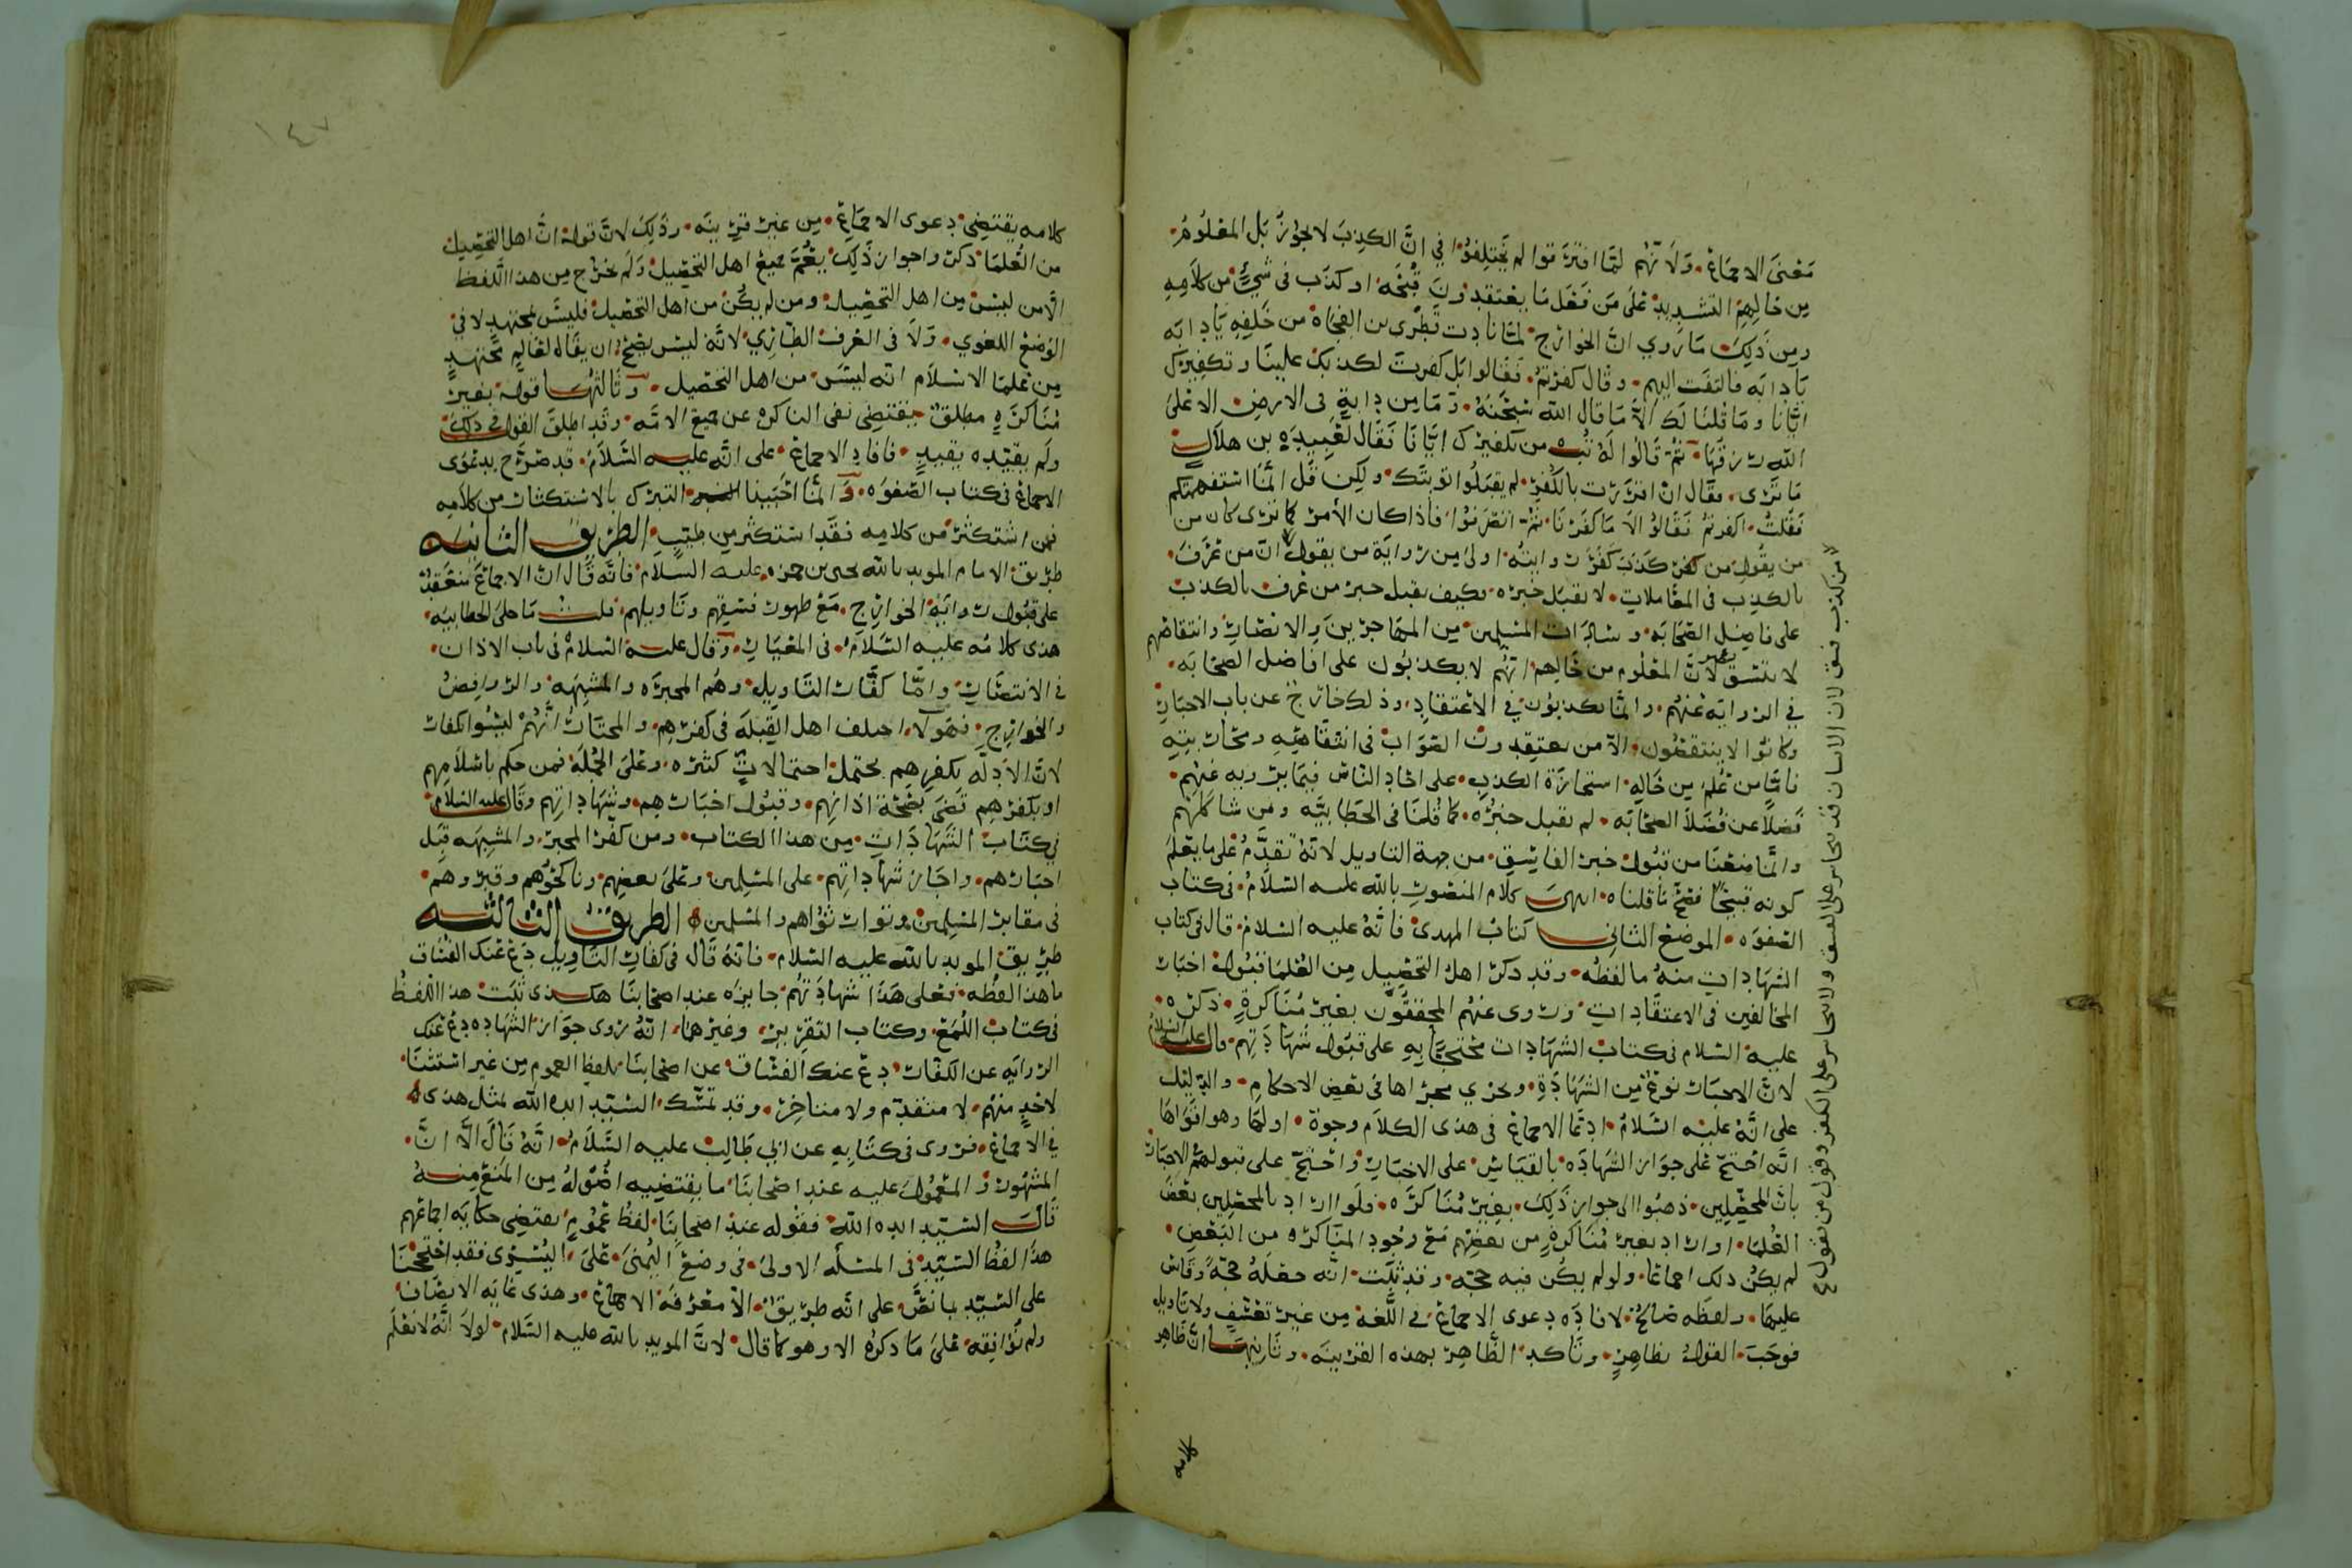 معنى الاجماع ولانهم لما افترقوا لم يختلفوا في ان الكذب لا يجوز بل المعلوم
من حالهم التشديد على من فعل ما يعتقدون قبحه او كذب في شيء من كلامه
ومن ذلك ما روي ان الخوارج لما نادت قطري بن الفجاة من خلفه يا دابه
يا دابه فالتفت اليهم وقال كفرتم فقالوا بل كفرت لكذبك علينا وتكفيرك
ايانا وما قلنا لك الا ما قال الله سبحنه وما من دابة في الارض الا على
الله رزقها ثم قالوا له تب من تكفيرك ايانا فقال لعبيده بن هلال
ما ترى فقال ان اقررت بالكفر لم يقبلوا توبتك ولكن قل انما استفهمتكم
فقلت اكفرتم فقالوا لا ما كفرنا ثم انصرفوا فاذا كان الأمر كما ترى كان من
من يقول من كفر كذب كفر ورايته اولى من رواية من يقول ان من عرف
بالكذب في المعاملات لا نقبل خبره فكيف نقبل خبر من عرف بالكذب
على فاضل الصحابه وسادات المسلمين من المهاجرين والانصار وانتقاصهم
لا بفسق لان المعلوم من حالهم انهم لا يكذبون على افاضل الصحابه
في الروايه عنهم وانما يكذبون في الاعتقاد وذلك خارج عن باب الاخبار
وكانوا لا ينتقصون الا من يعتقدون الصواب في انتقاصه ومحاربته
فاما من علم من حاله استجازة الكذب على احاد الناس فيما يرويه عنهم
فضلا عن فضلا الصحابه لم نقبل خبره كما قلنا في الخطابيه ومن شاكلهم
وانما منعنا من قبول خبر الفاسق من جهة التاويل لانه تقدم على ما يعلم
كونه قبيحا فصح ما قلناه انتهى كلام المنصور بالله عليه السلام في كتاب
الصفوه الموضع الثاني كتاب المهدي فانه عليه السلام قال في كتاب
الشهادات منه ما لفظه وقد ذكر اهل التحصيل من العلما قبول اخبار
المخالفين في الاعتقادات وروى عنهم المحققون بغير مناكرة ذكره
عليه السلام في كتاب الشهادات محتجا به على قبول شهادتهم قال عليه السلام
لان الاخبار نوع من الشهادة وتجري مجراها في بعض الاحكام والدليل
على انه عليه السلام ادعا الاجماع في هذى الكلام وجوه اولها وهو اقواها
انه احتج على جواز الشهاده بالقياس على الاخبار واحتج على قبولهم الاخبار
بان المحصلين ذهبوا الى جواز ذلك بغير مناكره فلو اراد بالمحصلين بعض
العلما او اراد بغير مناكرة من بعضهم مع وجود المناكره من البعض
لم يكن ذلك اجماعا ولو لم يكن فيه حجه وقد ثبت انه جعله حجة وقاس
عليها ولفظه صالح لافادة دعوى الاجماع في اللغة من غير تعسف ولا تاويل
فوجب القول بظاهره وتاكد الظاهر بهذه القرينه وثانيها ان ظاهر
كلامه
من كذب فسق لان الانسان قد يتجاسر على الفسق ولا يتجاسر على الكفر وقول من يقول
١٤٧
كلامه يقتضى دعوى الاجماع من غير قرينه وذلك لان قوله ان اهل التحصيل
من العلما ذكروا جواز ذلك يعم جميع اهل التحصيل ولم يخرج من هذا اللفظ
الا من ليس من اهل التحصيل ومن لم يكن من اهل التحصيل فليس بمجتهد لا في
الوضع اللغوي ولا في العرف الطاري لانه ليس يصح ان يقال لعالم مجتهد
من علما الاسلام انه ليس من اهل التحصيل وثالثها قوله بغير
مناكرة مطلق يقتضي نفي المناكره عن جميع الامه وقد اطلق القول في ذلك
ولم يقيده بقيد فافاد الاجماع على انه عليه السلام قد صرح بدعوى
الاجماع في كتاب الصفوه وانما احببنا التبرك بالاستكثار من كلامه
فمن استكثر من كلامه فقد استكثر من طيب الطريق الثانيه
طريق الامام المويد بالله يحيى بن حمزه عليه السلام فانه قال ان الاجماع منعقد
على قبول رواية الخوارج مع ظهور فسقهم وتاويلهم قلت ما خلى الخطابيه
هذى كلامه عليه السلام في المعيار وقال عليه السلام في باب الاذان
في الانتصار واما كفار التاويل وهم المجبره والمشبهه والروافض
والخوارج فهولا اختلف اهل القبلة في كفرهم والمختار انهم ليسوا كفارا
لان الادله بكفرهم تحتمل احتمالات كثيره وعلى الجملة فمن حكم باسلامهم
او بكفرهم قضى بصحة اذانهم وقبول اخبارهم وشهاداتهم وقال عليه السلام
في كتاب الشهادات من هذا الكتاب ومن كفر المجبر والمشبهه قبل
اخبارهم واجاز شهاداتهم على المسلمين وعلى بعضهم وناكحوهم وقبروهم
في مقابر المسلمين وتوارثوا هم والمسلمين الطريق الثالثه
طريق المويد بالله عليه السلام فانه قال في كفار التاويل دع عنك الفساق
ما هذا لفظه فعلى هذا شهادتهم جايزه عند اصحابنا هكذى ثبت هذا اللفظ
في كتاب اللمع وكتاب التقرير وغيرهما انه روى جواز الشهاده دع عنك
الروايه عن الكفار دع عنك الفساق عن اصحابنا بلفظ العموم من غير استثنا
لاحد منهم لا متقدم ولا متاخر وقد تمسك السيد ايده الله لمثل هذى
في الاجماع فروى في كتابه عن ابي طالب عليه السلام انه قال الا ان
المشهور والمعمول عليه عند اصحابنا ما يقتضيه اصوله من المنع منه
قال السيد ايده الله فقوله عند اصحابنا لفظ عموم يقتضي حكايه اجماعهم
هذا لفظ السيد في المسئله الاولى في وضع اليمنى على اليسرى فقد احتججنا
على السيد بما نص على انه طريق الا معرفة الاجماع وهذى غايه الانصاف
ولم نوافقه على ما ذكره الا وهو كما قال لان المويد بالله عليه السلام لولا انه لا نعلم